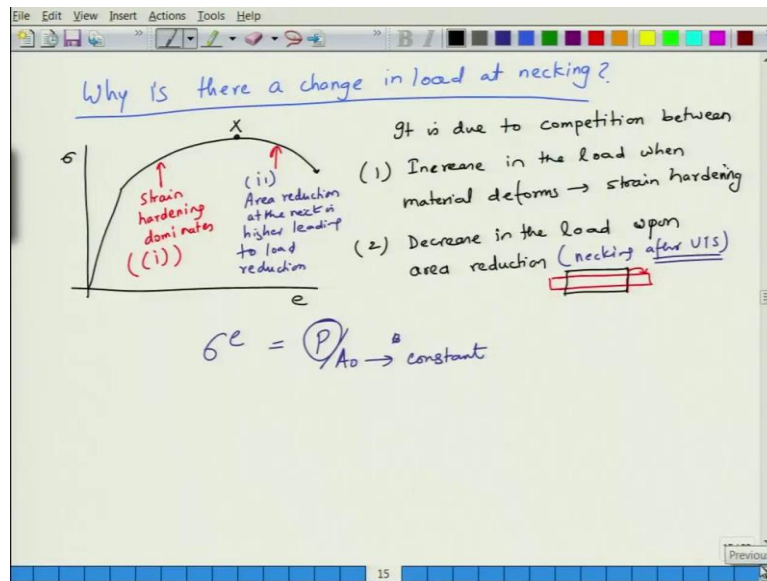 File Edit View Insert Actions Tools Help
B I
Why is there a change in load at necking?
σ
X
Strain
hardening
dominates
((i))
(ii)
Area reduction
at the neck is
higher leading
to load
reduction
e
It is due to competition between
(1) Increase in the load when
material deforms → strain hardening
(2) Decrease in the load upon
area reduction (necking after UTS)
σe = P/A0 → constant
15
Previou